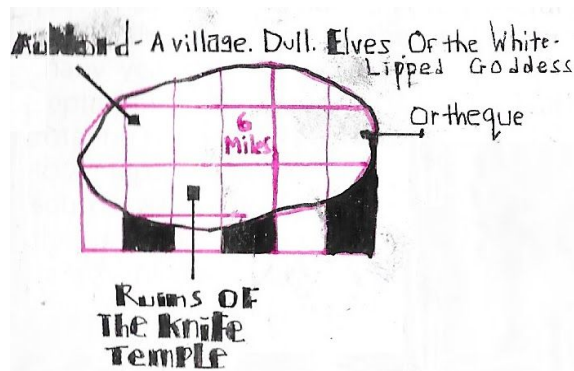 - A village. Dull. Elves. Of the White-
Lipped Goddess
Ortheque
6
Miles
Ruins OF
The Knife
TEMPLE